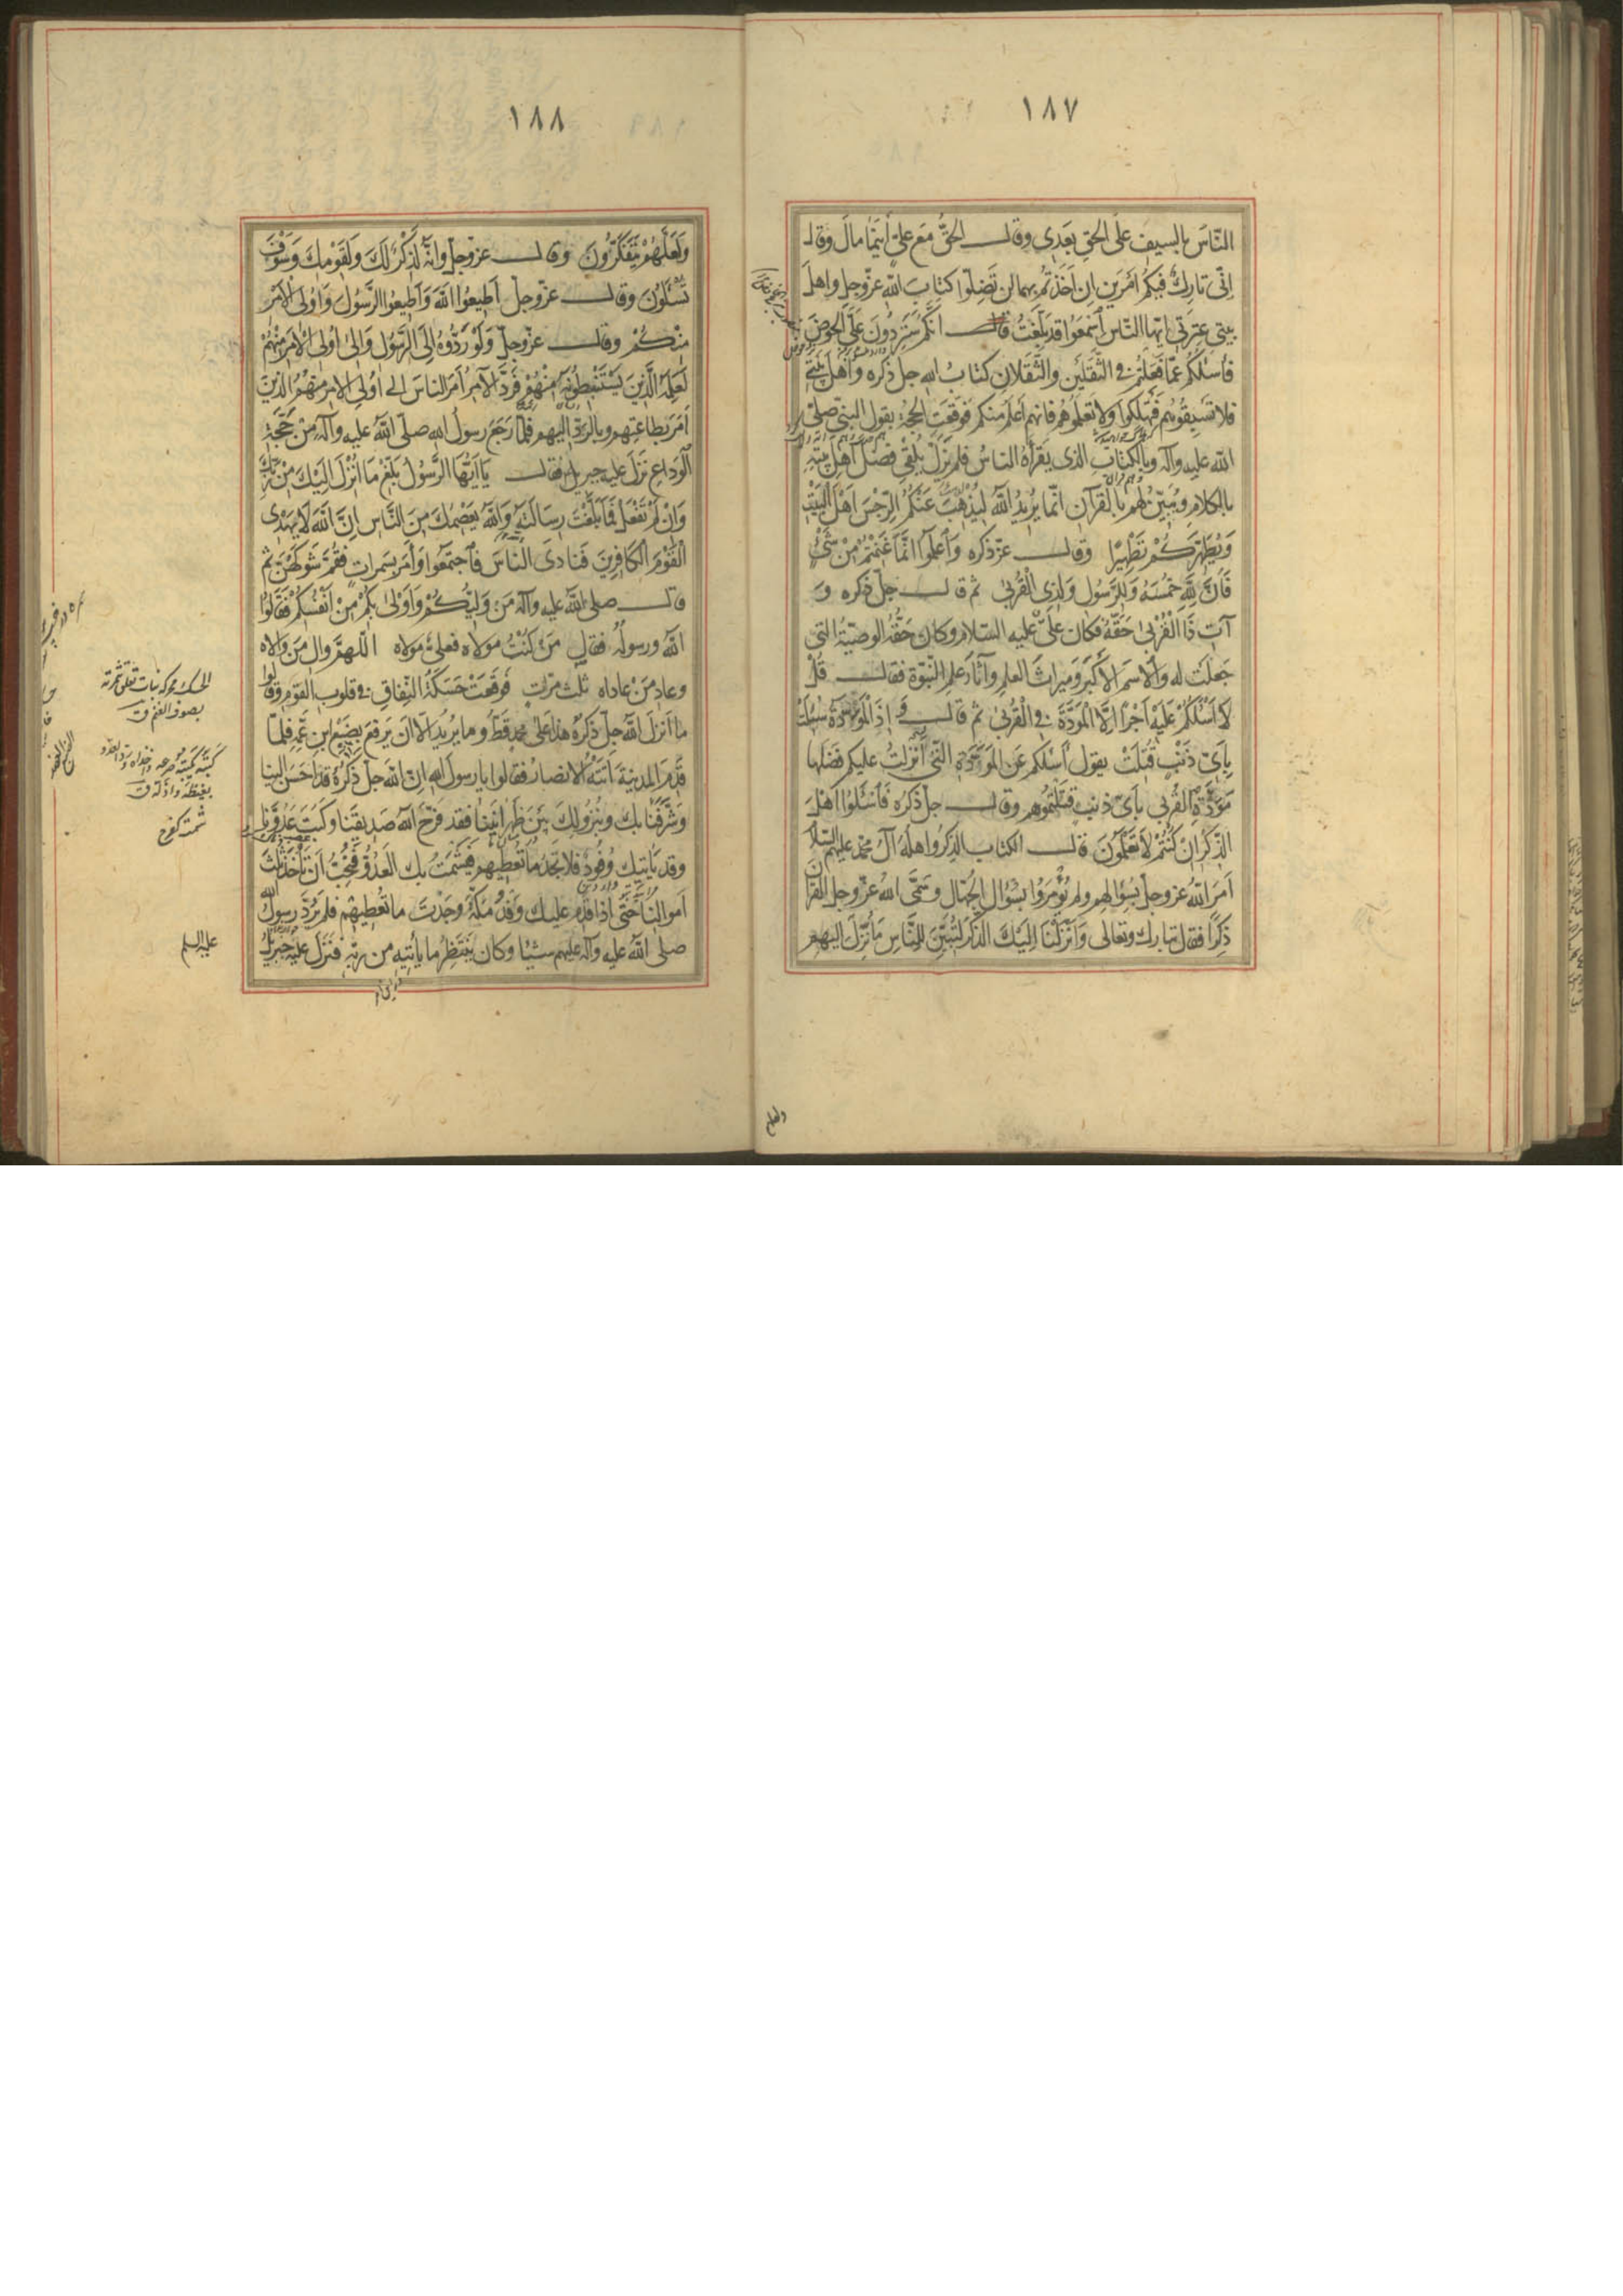 ١٨٧
الناسَ بالسيف على الحق بعدى وقال الحقُّ مع علىّ أينما مال وقال
إنّى تاركٌ فيكم أمرين إن أخذتم بهما لن تضلّوا كتاب الله عزّوجل واهل
بيتى عترتى ايها الناس اسمعوا قد بلّغتُ انّكم ستردون علىّ الحوض
فأسئلكم عمّا فعلتم فى الثقلين والثقلان كتابُ الله جل ذكره وأهل بيتى
فلا تسبقوهم فتهلكوا ولا تعلّموهم فانهم أعلم منكم فوقعت الحجة بقول النبى صلى
الله عليه وآله وبالكتاب الذى يقرأه الناسُ فلم يزل يُلقى فضل أهل بيته
بالكلام ويُبيّن لهم بالقرآن انّما يريد الله ليذهب عنكم الرجس أهل البيت
ويطهركم تطهيرا وقال عزّ ذكره واعلموا انّما غنمتم من شىء
فأنّ لله خمسه وللرسول ولذى القربى ثم قال جلّ ذكره و
آت ذا القربى حقّه فكان علىّ عليه السلام وكان حقّه الوصيّة التى
جعلت له والاسم الأكبر وميراث العلم وآثار علم النبوّة فقال قل
لا اسئلكم عليه اجرا الّا المودّة فى القربى ثم قال و إذا الموءودة سئلت
بأىّ ذنب قتلت يقول أسئلكم عن المودّة التى أنزلتُ عليكم فضلها
مودّة القربى بأىّ ذنب قتلتموهم وقال جلّ ذكره فأسئلوا أهل
الذّكر ان كنتم لا تعلمون قال الكتاب الذكر واهله آل محمد عليهم السلام
أمر الله عزوجلّ بسؤالهم ولم يؤمروا بسؤال الجهّال وسمّى الله عزّوجل القرآن
ذكرا فقال تبارك وتعالى وأنزلنا اليك الذكر لتبيّن للناس ما نزّل اليهم
ولعلهم
١٨٨
ولعلّهم يتفكّرون وقال عزّوجلّ وانّه لذكر لك ولقومك وسوف
تسئلون وقال عزّوجلّ أطيعوا الله وأطيعوا الرسول واولى الأمر
منكم وقال عزّوجلّ ولو ردّوه إلى الرسول وإلى اولى الأمر منهم
لعلمه الذين يستنبطونه منهم فردّ الأمر أمر الناس إلى أولى الامر منهم الذين
أمر بطاعتهم وبالردّ اليهم فلمّا رجع رسول الله صلّى الله عليه وآله من حجّة
الوداع نزل عليه جبريل فقال يا ايّها الرسول بلّغ ما أنزل اليك من ربّك
وان لم تفعل فما بلّغت رسالته والله يعصمك من الناس انّ الله لا يهدى
القوم الكافرين فنادى الناس فاجتمعوا وأمر بسمرات فقُمّ شوكهنّ ثم
قال صلى الله عليه وآله من وليّكم وأولى بكم من أنفسكم فقالوا
الله ورسوله فقال من كنت مولاه فعلىّ مولاه اللهمّ وال من والاه
وعاد من عاداه ثلث مرّات فوقعت حسكة النفاق فى قلوب القوم وقالوا
ما أنزل الله جلّ ذكره هذا على محمد قطّ وما يريد الّا أن يرفع بضبع ابن عمّه فلمّا
قدم المدينة أتته الانصار فقالوا يا رسول الله إنّ الله جلّ ذكره قد أحسن الينا
وشرّفنا بك وبنزولك بين ظهرانينا فقد فرّح الله صديقنا وكبت عدوّنا
وقد يأتيك وفود فلا تجد ما تعطيهم فيشمت بك العدوّ فنحبّ أن تأخذ ثلث
أموالنا حتّى إذا قدم عليك وفد مكّة وجدت ما تعطيهم فلم يردّ رسول الله
صلى الله عليه وآله عليهم شيئا وكان ينتظر ما يأتيه من ربّه فنزل عليه جبريل
الحسك محركة نبات تعلق ثمرته
بصوف الغنم ق
كبته يكبته صرعه واخزاه وردّ العدو
بغيظه واذلّه ق
شمت كفرح
عليه السلم